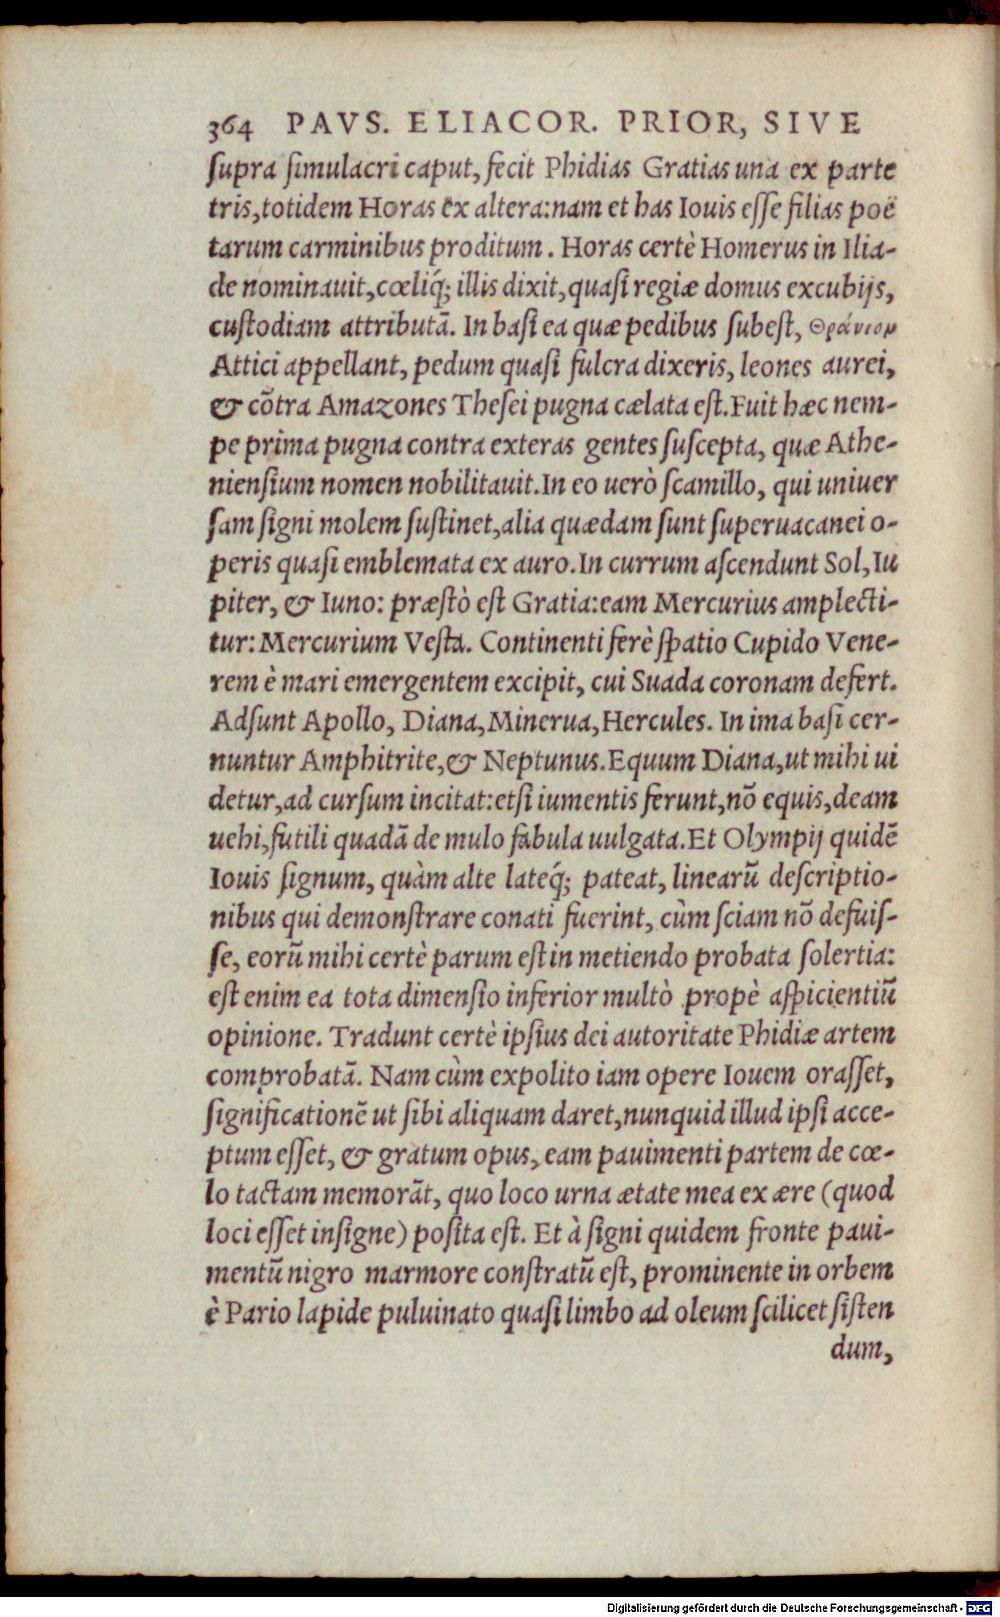 364 PAVS. ELIACOR. PRIOR, SIVE
supra simulacri caput, fecit Phidias Gratias una ex parte
tris, totidem Horas ex altera: nam et has Iouis esse filias poë
tarum carminibus proditum. Horas certè Homerus in Ilia-
de nominauit, cœliq́; illis dixit, quasi regiæ domus excubijs,
custodiam attributā. In basi ea quæ pedibus subest, Θράνιον
Attici appellant, pedum quasi fulcra dixeris, leones aurei,
& cōtra Amazones Thesei pugna cælata est. Fuit hæc nem-
pe prima pugna contra exteras gentes suscepta, quæ Athe-
niensium nomen nobilitauit. In eo uerò scamillo, qui uniuer
sam signi molem sustinet, alia quædam sunt superuacanei o-
peris quasi emblemata ex auro. In currum ascendunt Sol, Iu
piter, & Iuno: præstò est Gratia: eam Mercurius amplecti-
tur: Mercurium Vesta. Continenti ferè spatio Cupido Vene-
rem è mari emergentem excipit, cui Suada coronam defert.
Adsunt Apollo, Diana, Minerua, Hercules. In ima basi cer-
nuntur Amphitrite, & Neptunus. Equum Diana, ut mihi ui
detur, ad cursum incitat: etsi iumentis ferunt, nō equis, deam
uehi, futili quadā de mulo fabula uulgata. Et Olympij quidē
Iouis signum, quàm alte lateq́; pateat, linearū descriptio-
nibus qui demonstrare conati fuerint, cùm sciam nō defuis-
se, eorū mihi certè parum est in metiendo probata solertia:
est enim ea tota dimensio inferior multò propè aspicientiū
opinione. Tradunt certè ipsius dei autoritate Phidiæ artem
comprobatā. Nam cùm expolito iam opere Iouem orasset,
significationē ut sibi aliquam daret, nunquid illud ipsi acce-
ptum esset, & gratum opus, eam pauimenti partem de cœ-
lo tactam memorāt, quo loco urna ætate mea ex ære (quod
loci esset insigne) posita est. Et à signi quidem fronte paui-
mentū nigro marmore constratū est, prominente in orbem
è Pario lapide puluinato quasi limbo ad oleum scilicet sisten
dum,
Digitalisierung gefördert durch die Deutsche Forschungsgemeinschaft - DFG